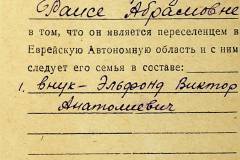 Раисе Абрамовне
в том, что он является переселенцем в
Еврейскую Автономную область и с ним
следует его семья в составе:
1. внук - Эльфонд Виктор
Анатолиевич